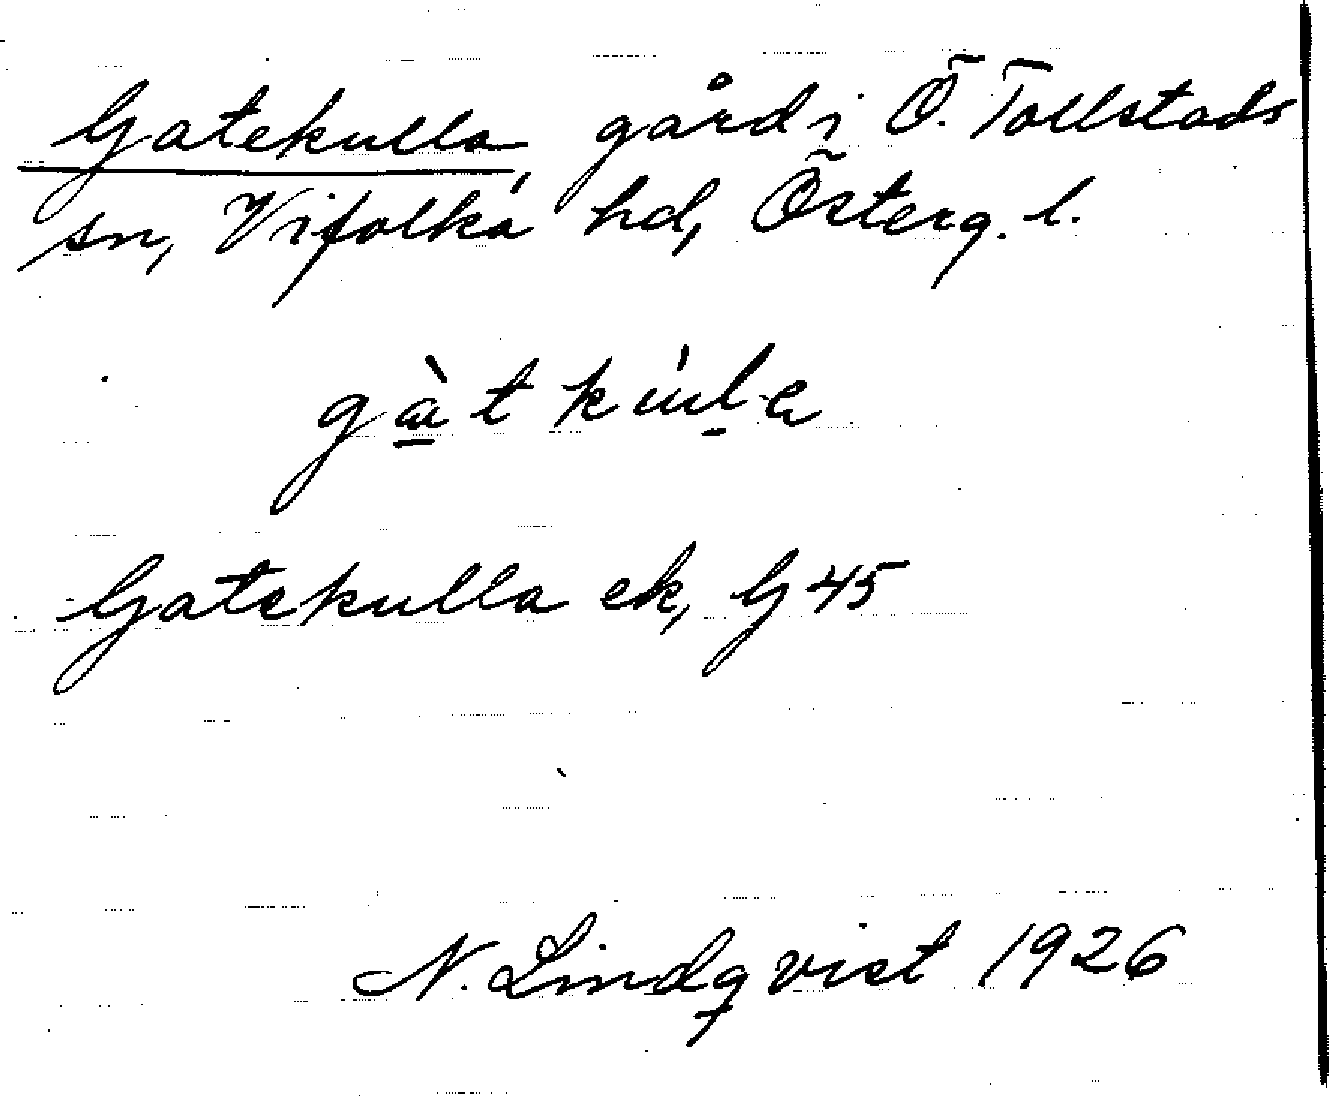 Gatekulla, gård i Ö. Tollstads
sn, Vifolka hd, Österg. l.
gàtkúla
Gatekulla ek, G 45
N. Lindqvist 1926